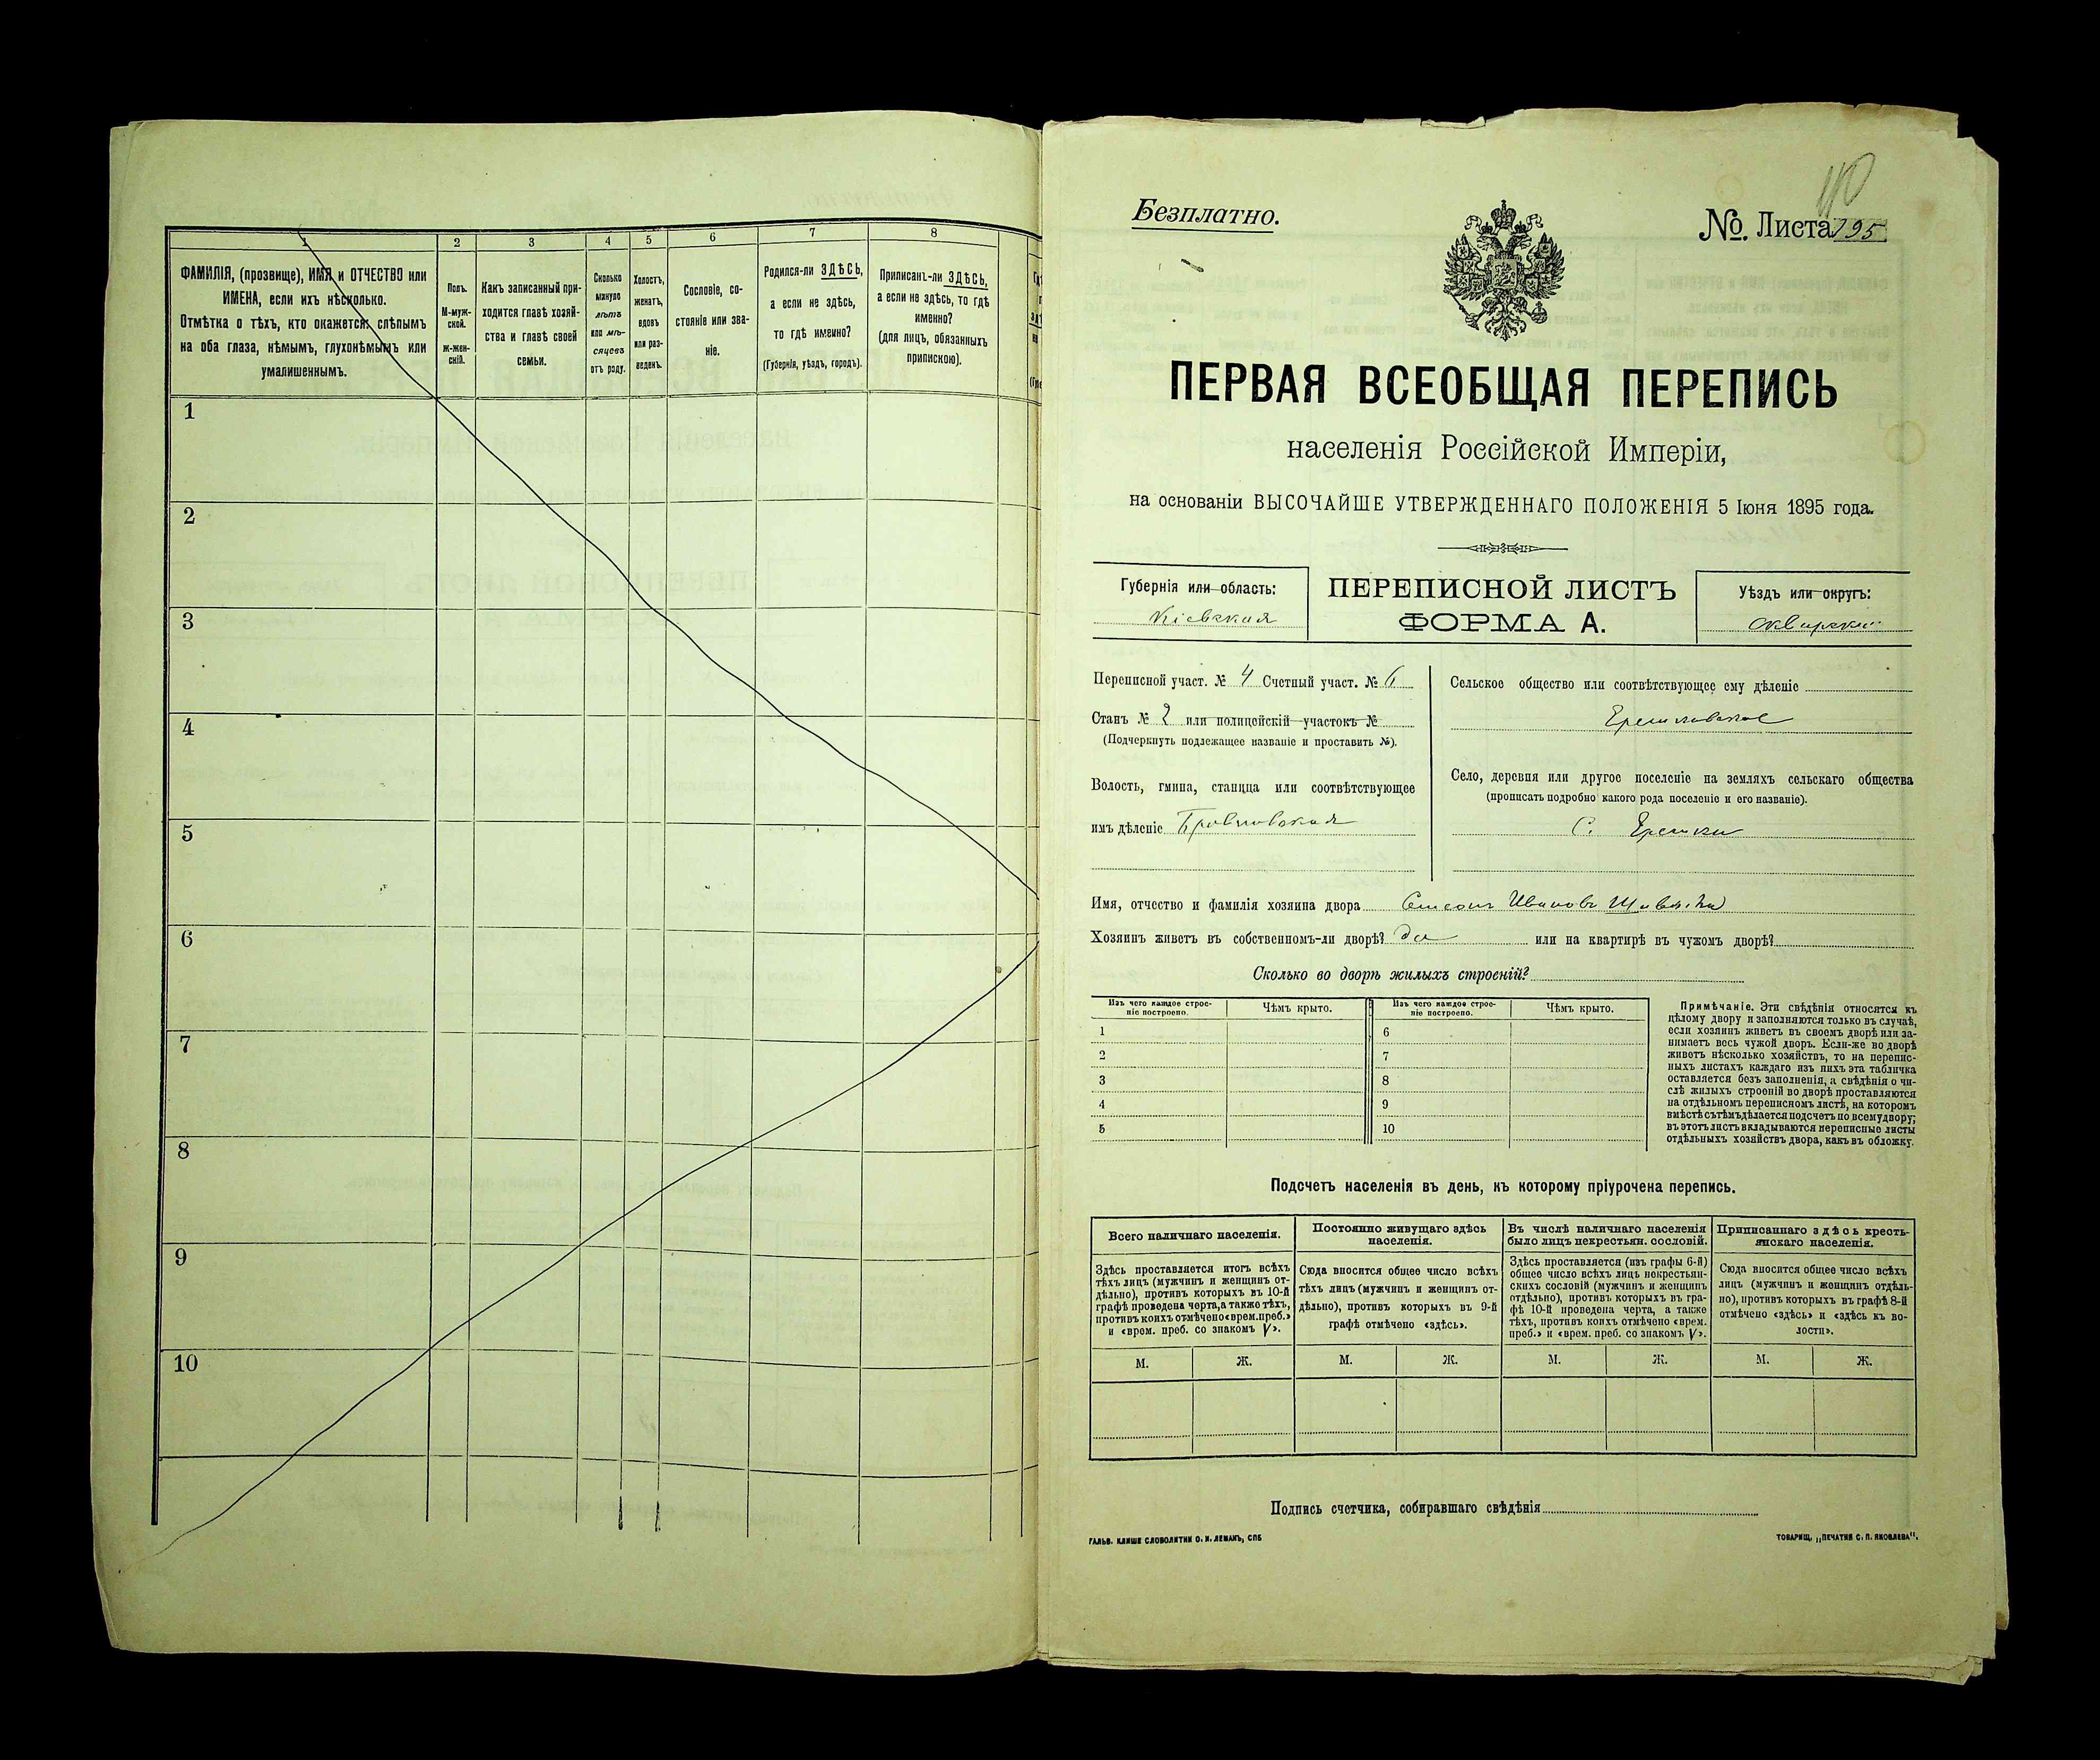 1
2
3
4
5
6
7
8
ФАМИЛІЯ, (прозвище), ИМЯ и ОТЧЕСТВО или
ИМЕНА, если ихъ нѣсколько.
Отмѣтка о тѣхъ, кто окажется: слѣпымъ
на оба глаза, нѣмымъ, глухонѣмымъ или
умалишеннымъ.
Полъ.
М-муж-
ской.
ж-жен-
скій.
Какъ записанный при-
ходится главѣ хозяй-
ства и главѣ своей
семьи.
Сколько
минуло
лѣтъ
или мѣ-
сяцевъ
отъ роду.
Холостъ,
женатъ,
вдовъ
или раз-
веденъ.
Сословіе, со-
стояніе или зва-
ніе.
Родился-ли ЗДѢСЬ,
а если не здѣсь,
то гдѣ именно?
(Губернія, уѣздъ, городъ).
Приписанъ-ли ЗДѢСЬ,
а если не здѣсь, то гдѣ
именно?
(для лицъ, обязанныхъ
припискою).
1
2
3
4
5
6
7
8
9
10
Безплатно.
110
№. Листа 195
ПЕРВАЯ ВСЕОБЩАЯ ПЕРЕПИСЬ
населенія Россійской Имперіи,
на основаніи ВЫСОЧАЙШЕ УТВЕРЖДЕННАГО ПОЛОЖЕНІЯ 5 Іюня 1895 года.
Губернія или область:
Кіевская
ПЕРЕПИСНОЙ ЛИСТЪ
ФОРМА А.
Уѣздъ или округъ:
Сквирскій
Переписной участ. № 4 Счетный участ. № 6
Станъ № 2 или полицейскій участокъ №
(Подчеркнуть подлежащее названіе и проставить №).
Волость, гмина, станица или соотвѣтствующее
имъ дѣленіе
Сельское общество или соотвѣтствующее ему дѣленіе
Село, деревня или другое поселеніе на земляхъ сельскаго общества
(прописать подробно какого рода поселеніе и его названіе).
С. Ерешки
Имя, отчество и фамилія хозяина двора Иванов
Хозяинъ живетъ въ собственномъ-ли дворѣ? да или на квартирѣ въ чужомъ дворѣ?
Сколько во дворѣ жилыхъ строеній?
Изъ чего каждое строе-
ніе построено.
Чѣмъ крыто.
Изъ чего каждое строе-
ніе построено.
Чѣмъ крыто.
1
6
2
7
3
8
4
9
5
10
Примѣчаніе. Эти свѣдѣнія относятся къ
цѣлому двору и заполняются только въ случаѣ,
если хозяинъ живетъ въ своемъ дворѣ или за-
нимаетъ весь чужой дворъ. Если-же во дворѣ
живетъ нѣсколько хозяйствъ, то на перепис-
ныхъ листахъ каждаго изъ нихъ эта табличка
оставляется безъ заполненія, а свѣдѣнія о чи-
слѣ жилыхъ строеній во дворѣ проставляются
на отдѣльномъ переписномъ листѣ, на которомъ
вмѣстѣ съ тѣмъ дѣлается подсчетъ по всему двору;
въ этотъ листъ вкладываются переписные листы
отдѣльныхъ хозяйствъ двора, какъ въ обложку.
Подсчетъ населенія въ день, къ которому пріурочена перепись.
Всего наличнаго населенія.
Здѣсь проставляется итогъ всѣхъ
тѣхъ лицъ (мужчинъ и женщинъ от-
дѣльно), противъ которыхъ въ 10-й
графѣ проведена черта, а также тѣхъ,
противъ коихъ отмѣчено «врем. преб.»
и «врем. преб. со знакомъ V».
Постоянно живущаго здѣсь
населенія.
Сюда вносится общее число всѣхъ
тѣхъ лицъ (мужчинъ и женщинъ от-
дѣльно), противъ которыхъ въ 9-й
графѣ отмѣчено «здѣсь».
Въ числѣ наличнаго населенія
было лицъ некрестьян. сословій.
Здѣсь проставляется (изъ графы 6-й)
общее число всѣхъ лицъ некрестьян-
скихъ сословій (мужчинъ и женщинъ
отдѣльно), противъ которыхъ въ гра-
фѣ 10-й проведена черта, а также
тѣхъ, противъ коихъ отмѣчено «врем.
преб.» и «врем. преб. со знакомъ V».
Приписаннаго здѣсь кресть-
янскаго населенія.
Сюда вносится общее число всѣхъ
лицъ (мужчинъ и женщинъ отдѣль-
но), противъ которыхъ въ графѣ 8-й
отмѣчено «здѣсь» и «здѣсь въ во-
лости».
М. Ж. М. Ж. М. Ж. М. Ж.
Подпись счетчика, собиравшаго свѣдѣнія
ГАЛЬВ. КЛИШЕ СЛОВОЛИТНИ О. И. ЛЕМАНЪ, СПБ
ТОВАРИЩ. „ПЕЧАТНЯ С. П. ЯКОВЛЕВА".